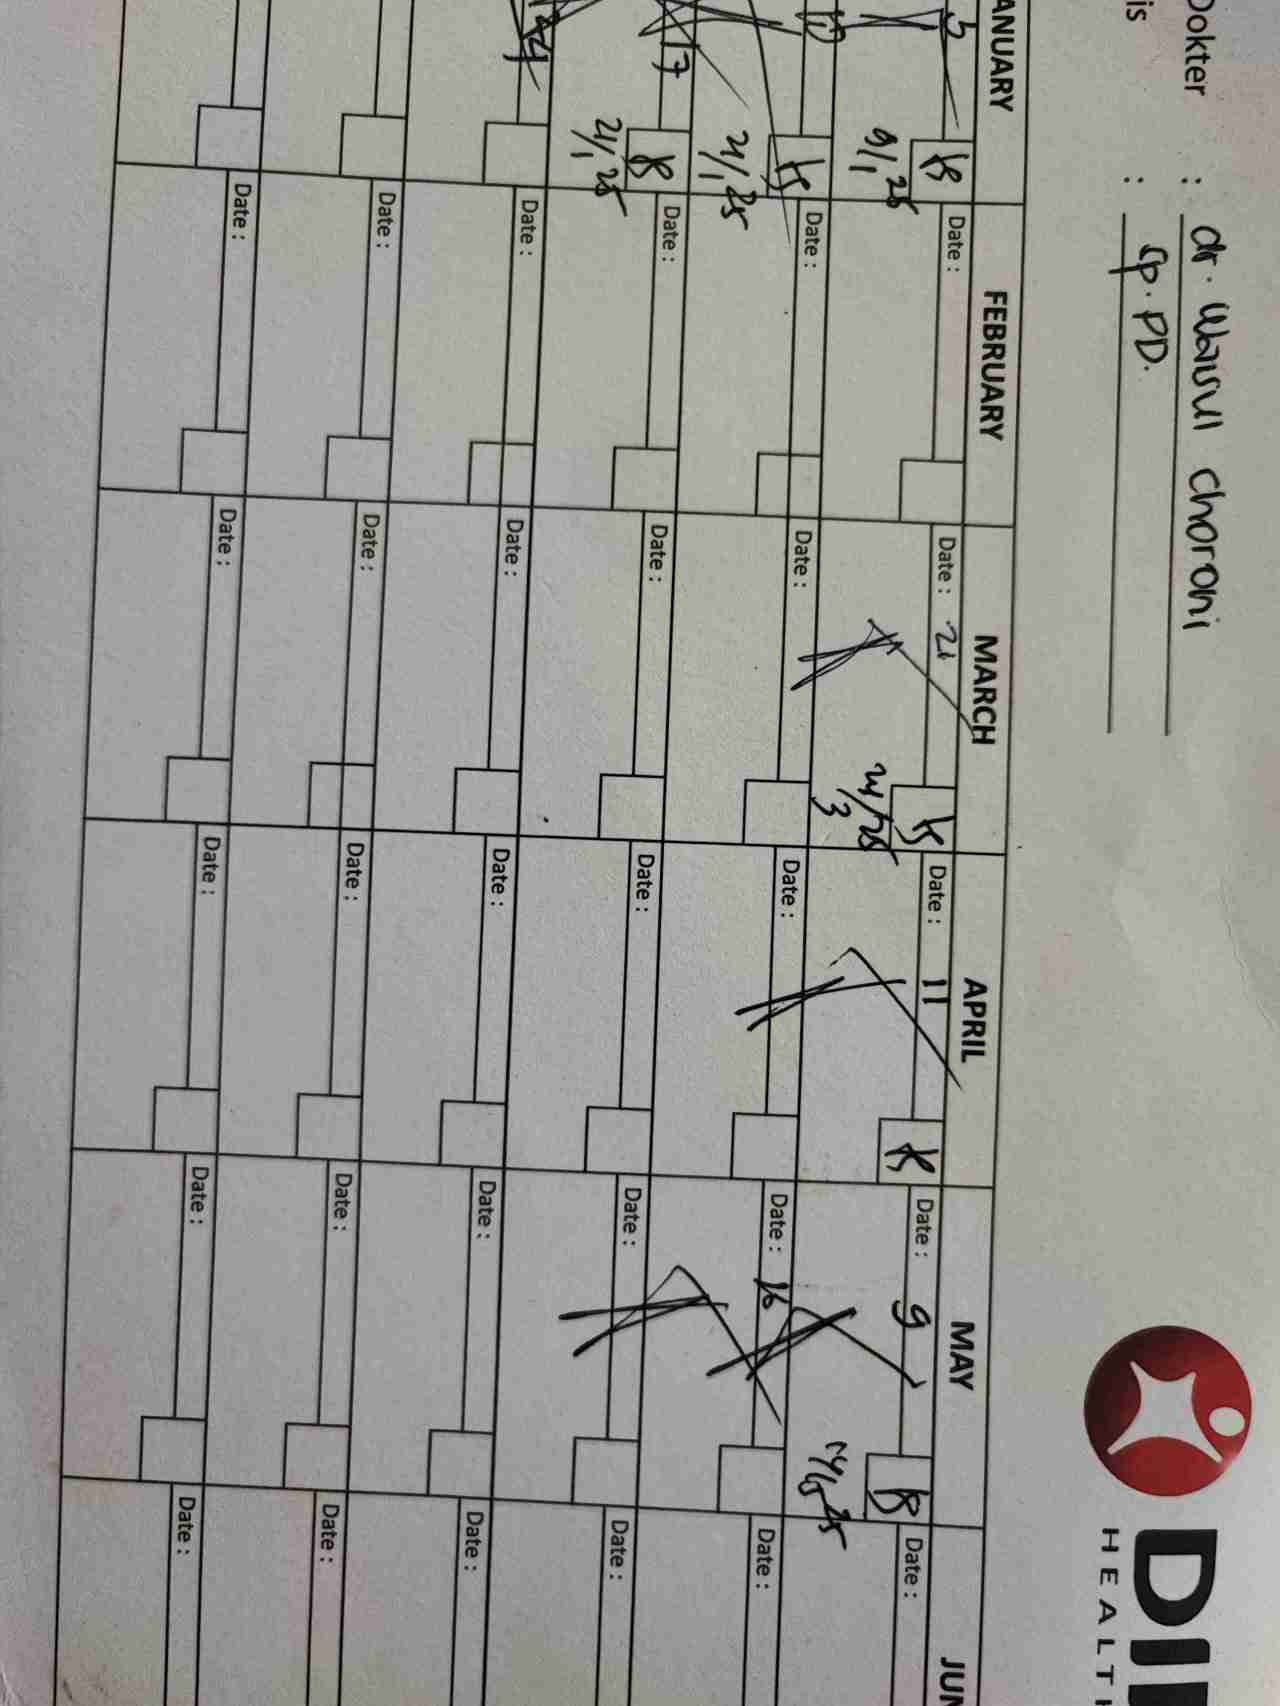 Dokter : dr. Waisul Choroni
is : Sp. PD.
DI
HEALT
ANUARY FEBRUARY MARCH APRIL MAY JUN
5 Date : Date : 21 Date : 11 Date : 9 Date :
9/1 25 24/3 25 14/5 25
Date : Date : Date : Date : 16 Date :
21/1 25
17 Date : Date : Date : Date : Date :
21/1 25
24 Date : Date : Date : Date : Date :
Date : Date : Date : Date : Date :
Date : Date : Date : Date : Date :